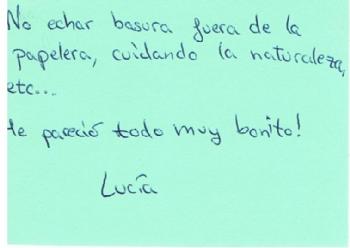 No echar basura fuera de la
papelera, cuidando la naturaleza,
etc...
Me pareció todo muy bonito!
Lucía